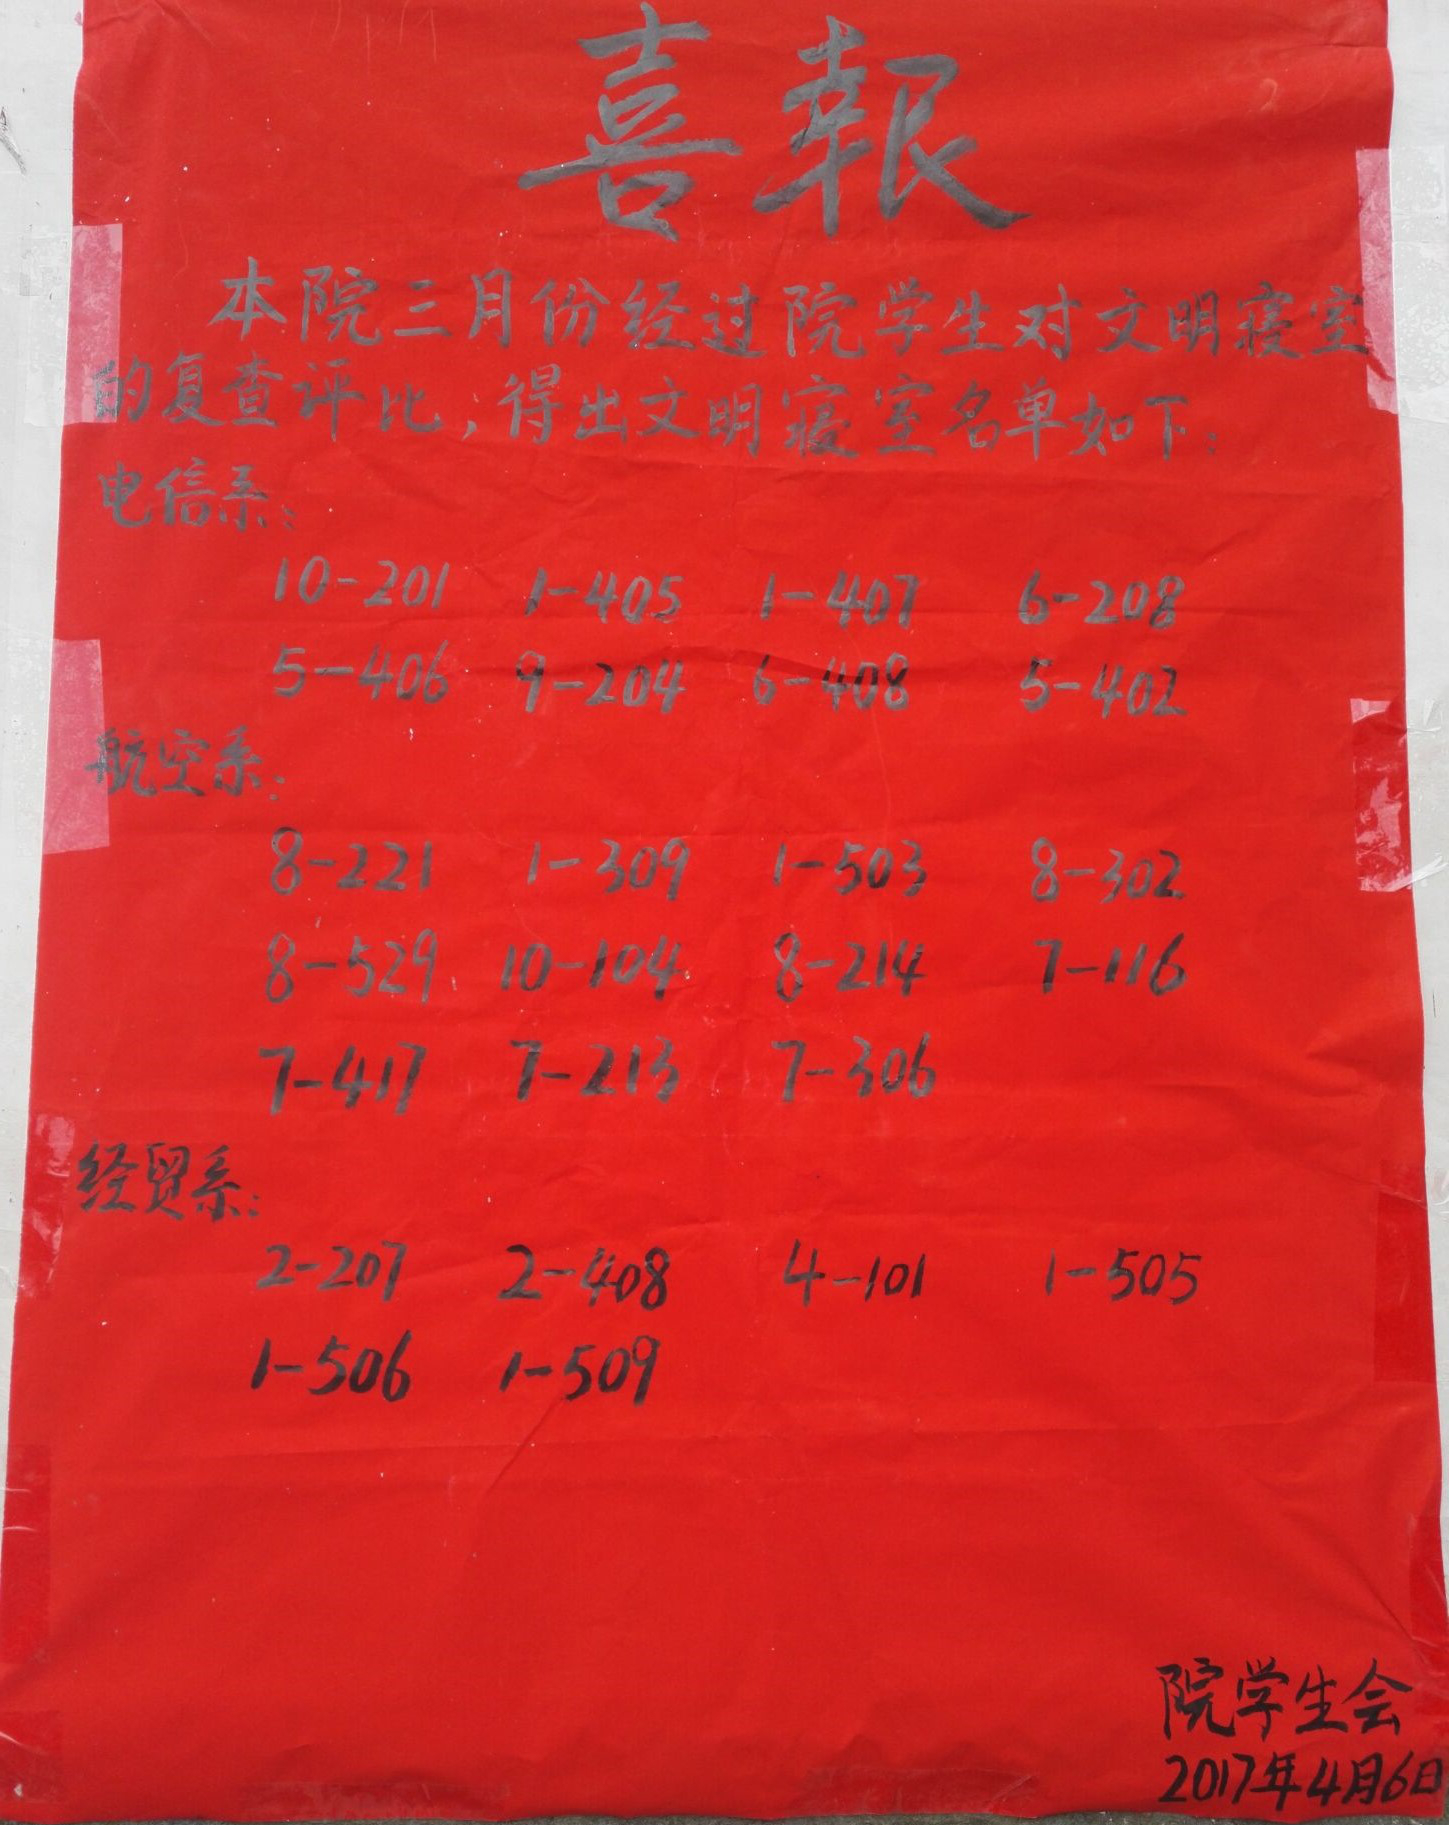 喜報
本院三月份经过院学生对文明寝室
的复查评比;得出文明寝室名单如下:
电信系:
10-201 1-405 1-407 6-208
5-406 9-204 6-408 5-402
航空系:
8-221 1-309 1-503 8-302
8-529 10-104 8-214 7-116
7-417 7-213 7-306
经贸系:
2-207 2-408 4-101 1-505
1-506 1-509
院学生会
2017年4月6日